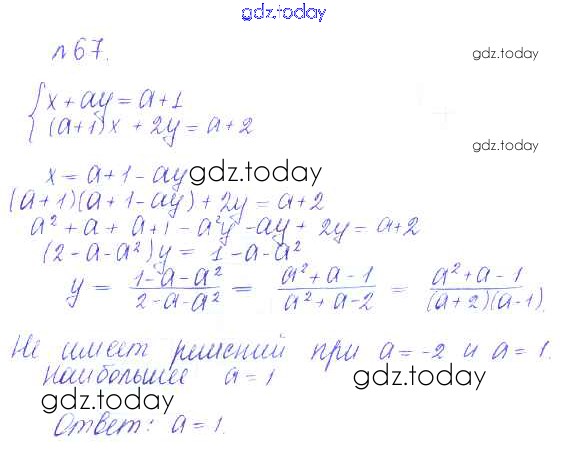 gdz.today
№67.
gdz.today
{ x + ay = a + 1
(a+1)x + 2y = a+2
gdz.today
x = a + 1 - ay gdz.today
(a+1)(a+1-ay) + 2y = a+2
a² + a + a + 1 - a²y - ay + 2y = a+2
(2 - a - a²)y = 1 - a - a²
y = (1-a-a²)/(2-a-a²) = (a²+a-1)/(a²+a-2) = (a²+a-1)/((a+2)(a-1)).
Не имеет решений при a = -2 и a = 1.
Наибольшее a = 1 gdz.today
gdz.today
Ответ: a = 1.